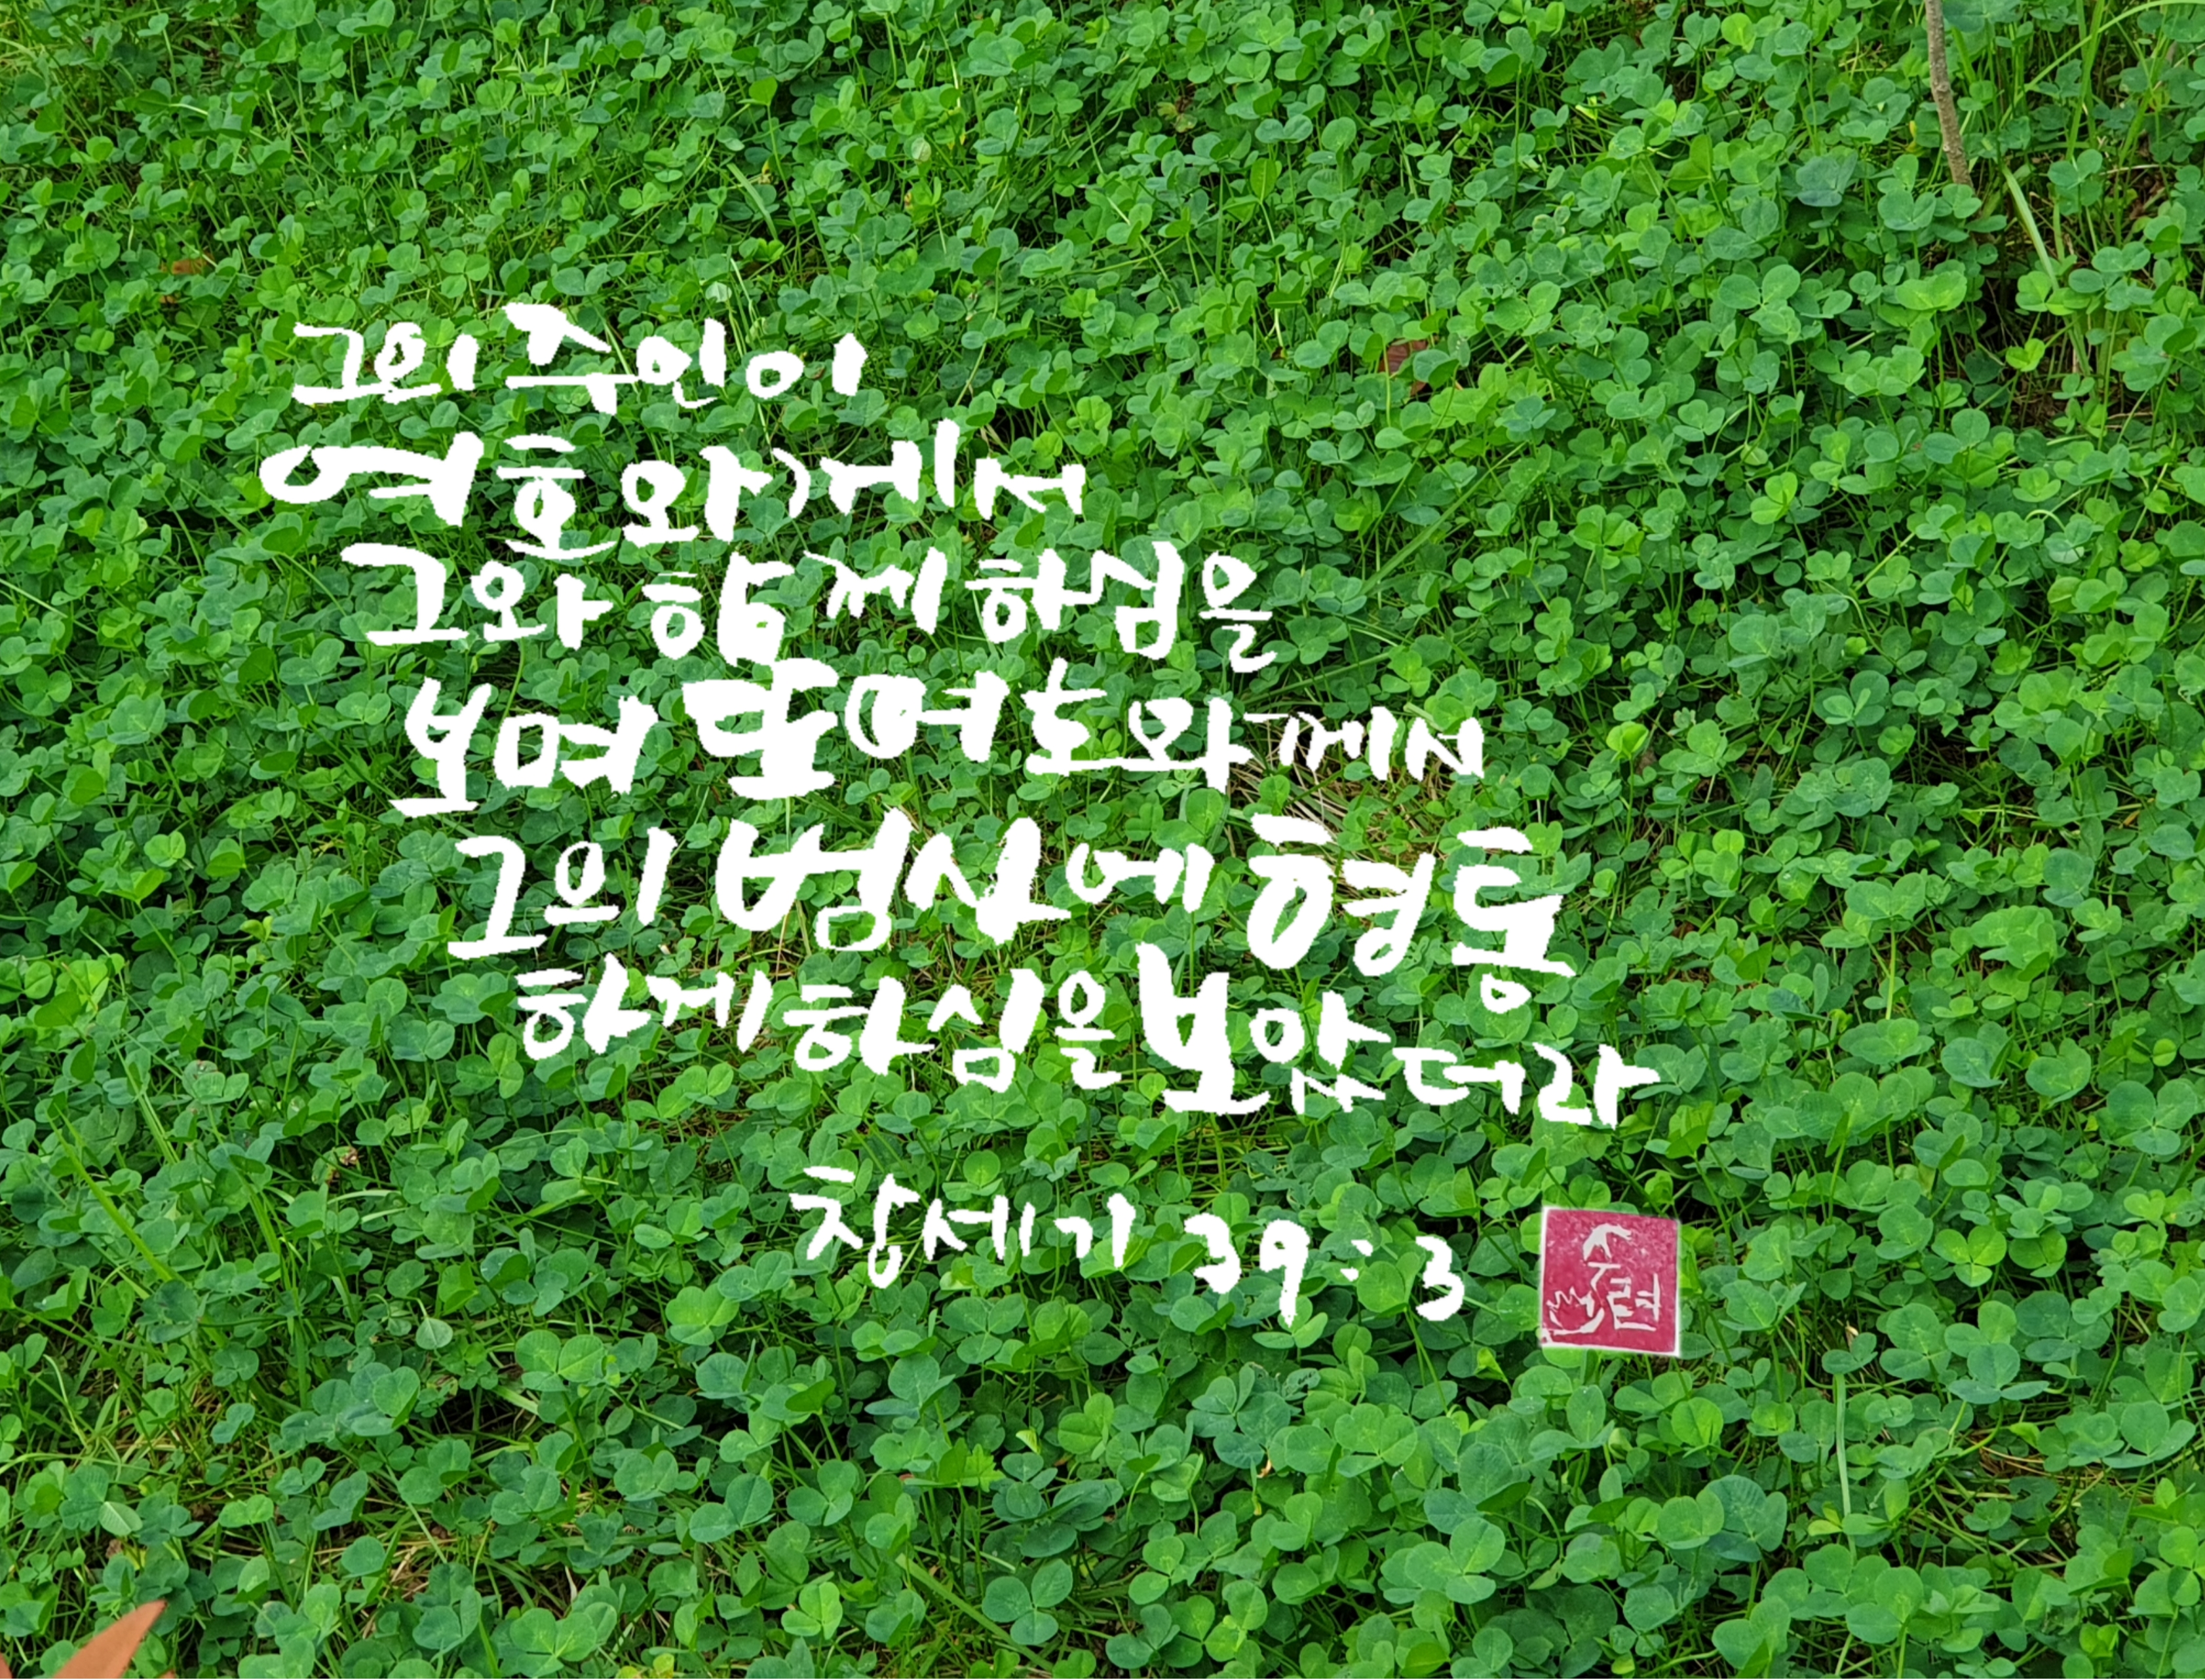 그의 주인이
여호와께서
그와 함께 하심을
보며 또 여호와께서
그의 범사에 형통
하게 하심을 보았더라
창세기 39:3